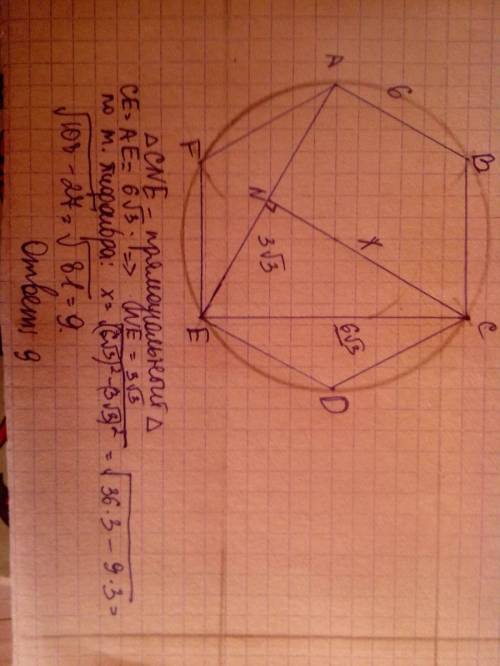 A
6
B
F
N
3√3
x
E
6√3
C
D
△CNE - прямоугольный △
CE = AE = 6√3. => NE = 3√3
по т. Пифагора: x = √(6√3)² - (3√3)² = √36·3 - 9·3 =
√108 - 27 = √81 = 9
Ответ: 9